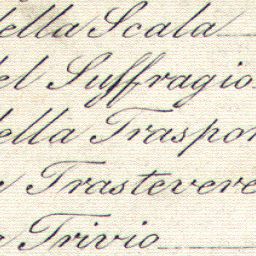 della Scala
del Suffragio
della Traspon
a Trastevere
a Trivio